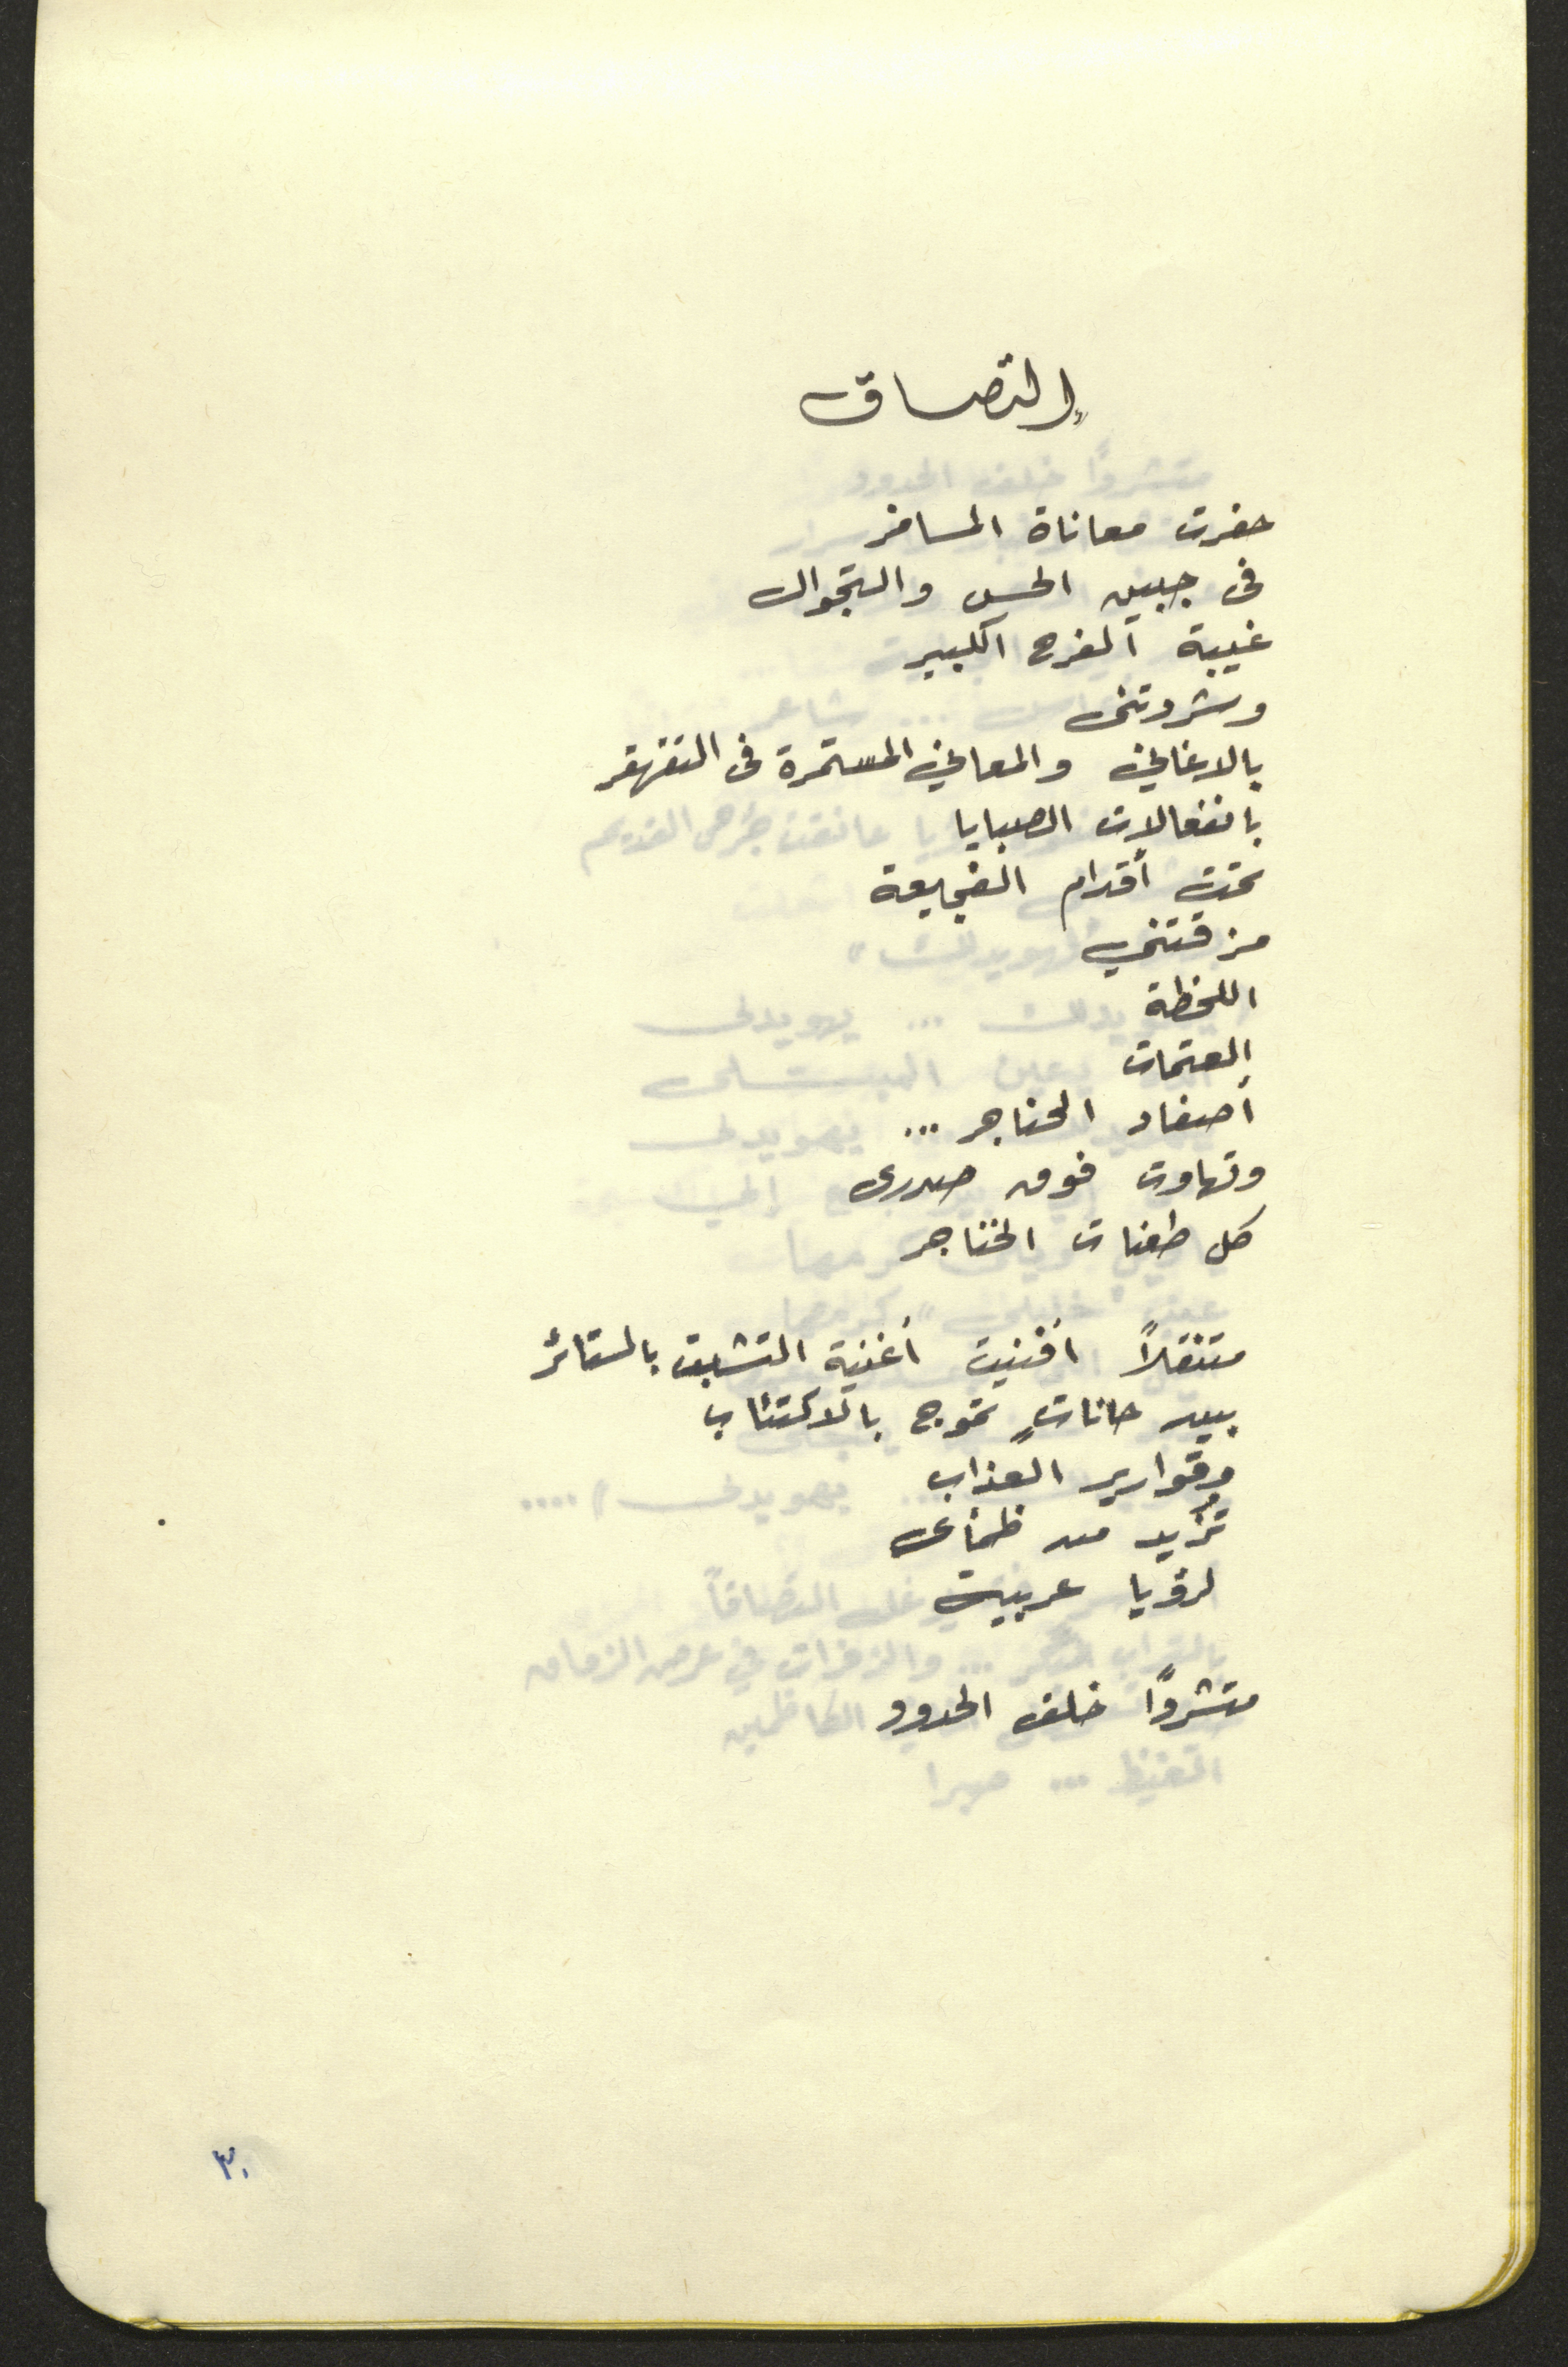 إلتصاق
حفرت معاناة المسافر
فى جبين الحس والتجوال
غيبة ألفرح الكبير
وشردتنى
بالاغاني والمعاني المستمرة فى التقهقر
بانفعالات الصبايا
تحت أقدام الفجيعة
مزقتني
اللحظة
العتمات
أصفاد الحناجر ...
وتهاوت فوق صدرى
كل طعنات الخناجر
متنقلاً أفنيت أغنية التشبث بالستائر
بين حاناتٍ تموج بالاكتئاب
وقوارير العذاب
تزيد من ظمأى
لرؤيا عربيت
متشردًا خلف الحدود
٣٠